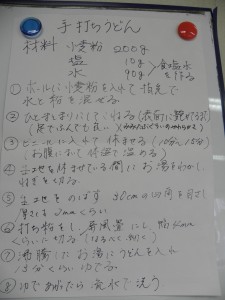 手打ちうどん
材料 小麦粉 200g
塩 10g
水 90g 食塩水を作る
① ボールに小麦粉を入れて指先で
水と粉を混ぜる。
② ひとまとまりにしてこねる(表面に艶
③ ビニールに入れて休ませる(10分〜15分)
(お腹において体温で温める)
④ 生地を休ませている間にお湯をわかし、
ねぎを切る。
⑤ 生地をのばす 30cmの四角を目ざし
厚さは2mmくらい
⑥ 打ち粉をし、屏風畳にし、幅
くらいに切る(
⑦ 沸騰したお湯にうどんを入れ
15分くらいゆでる。
⑧ ゆであがったら流水で洗う